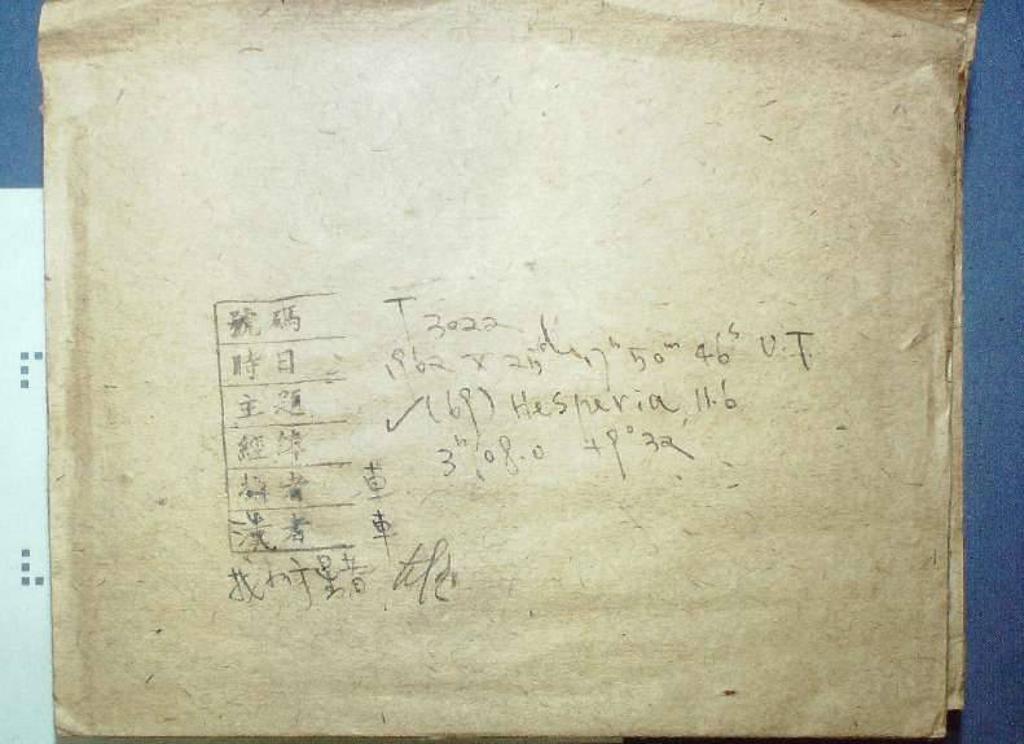 號碼 T 3022
時日 1962 X 25 17ʰ 50ᵐ 46ˢ U.T.
主題 ✓(69) Hesperia 11.6
經緯 3ʰ 08.0 +9° 32
者 車
者 車